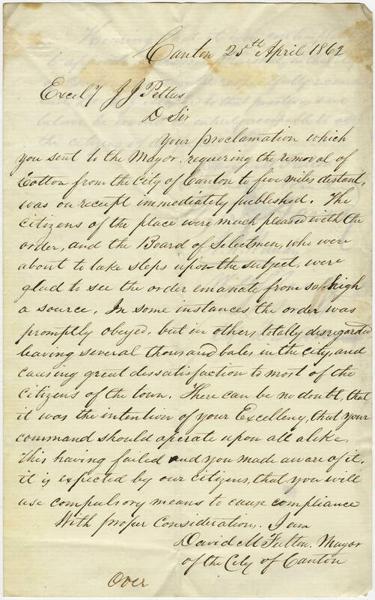 Canton 25th April 1862
Excely J J Pettus
D Sir
Your proclamation which
you sent to the Mayor, requering the removal of
Cotton from the City of Canton to five miles distant,
was on receipt immediately published. The
Citizens of the place were much pleased with the
order, and the Board of Selectmen, who were
about to take steps upon the subject, were
glad to see the order emanate from so high
a source. In some instances the order was
promptly obeyed, but in others, totally disregarded
leaving several thousand bales in the city, and
causing great dissatisfaction to most of the
Citizens of the town. There can be no doubt, that
it was the intention of your Excellency, that your
command should operate upon all alike.
This having failed and you made aware of it,
it is expected by our citizens, that you will
use compulsory means to cause compliance
With proper consideration. I am
David M Fulton, Mayor
of the City of Canton
Over